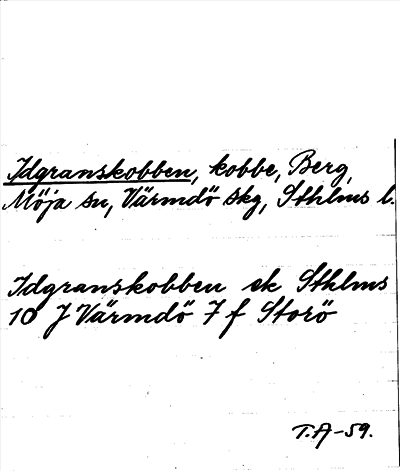 Idgranskobben, kobbe, Berg,
Möja sn, Värmdö skg, Sthlms l.
Idgranskobben ek Sthlms
10 J Värmdö 7 f Storö
T.A-59.